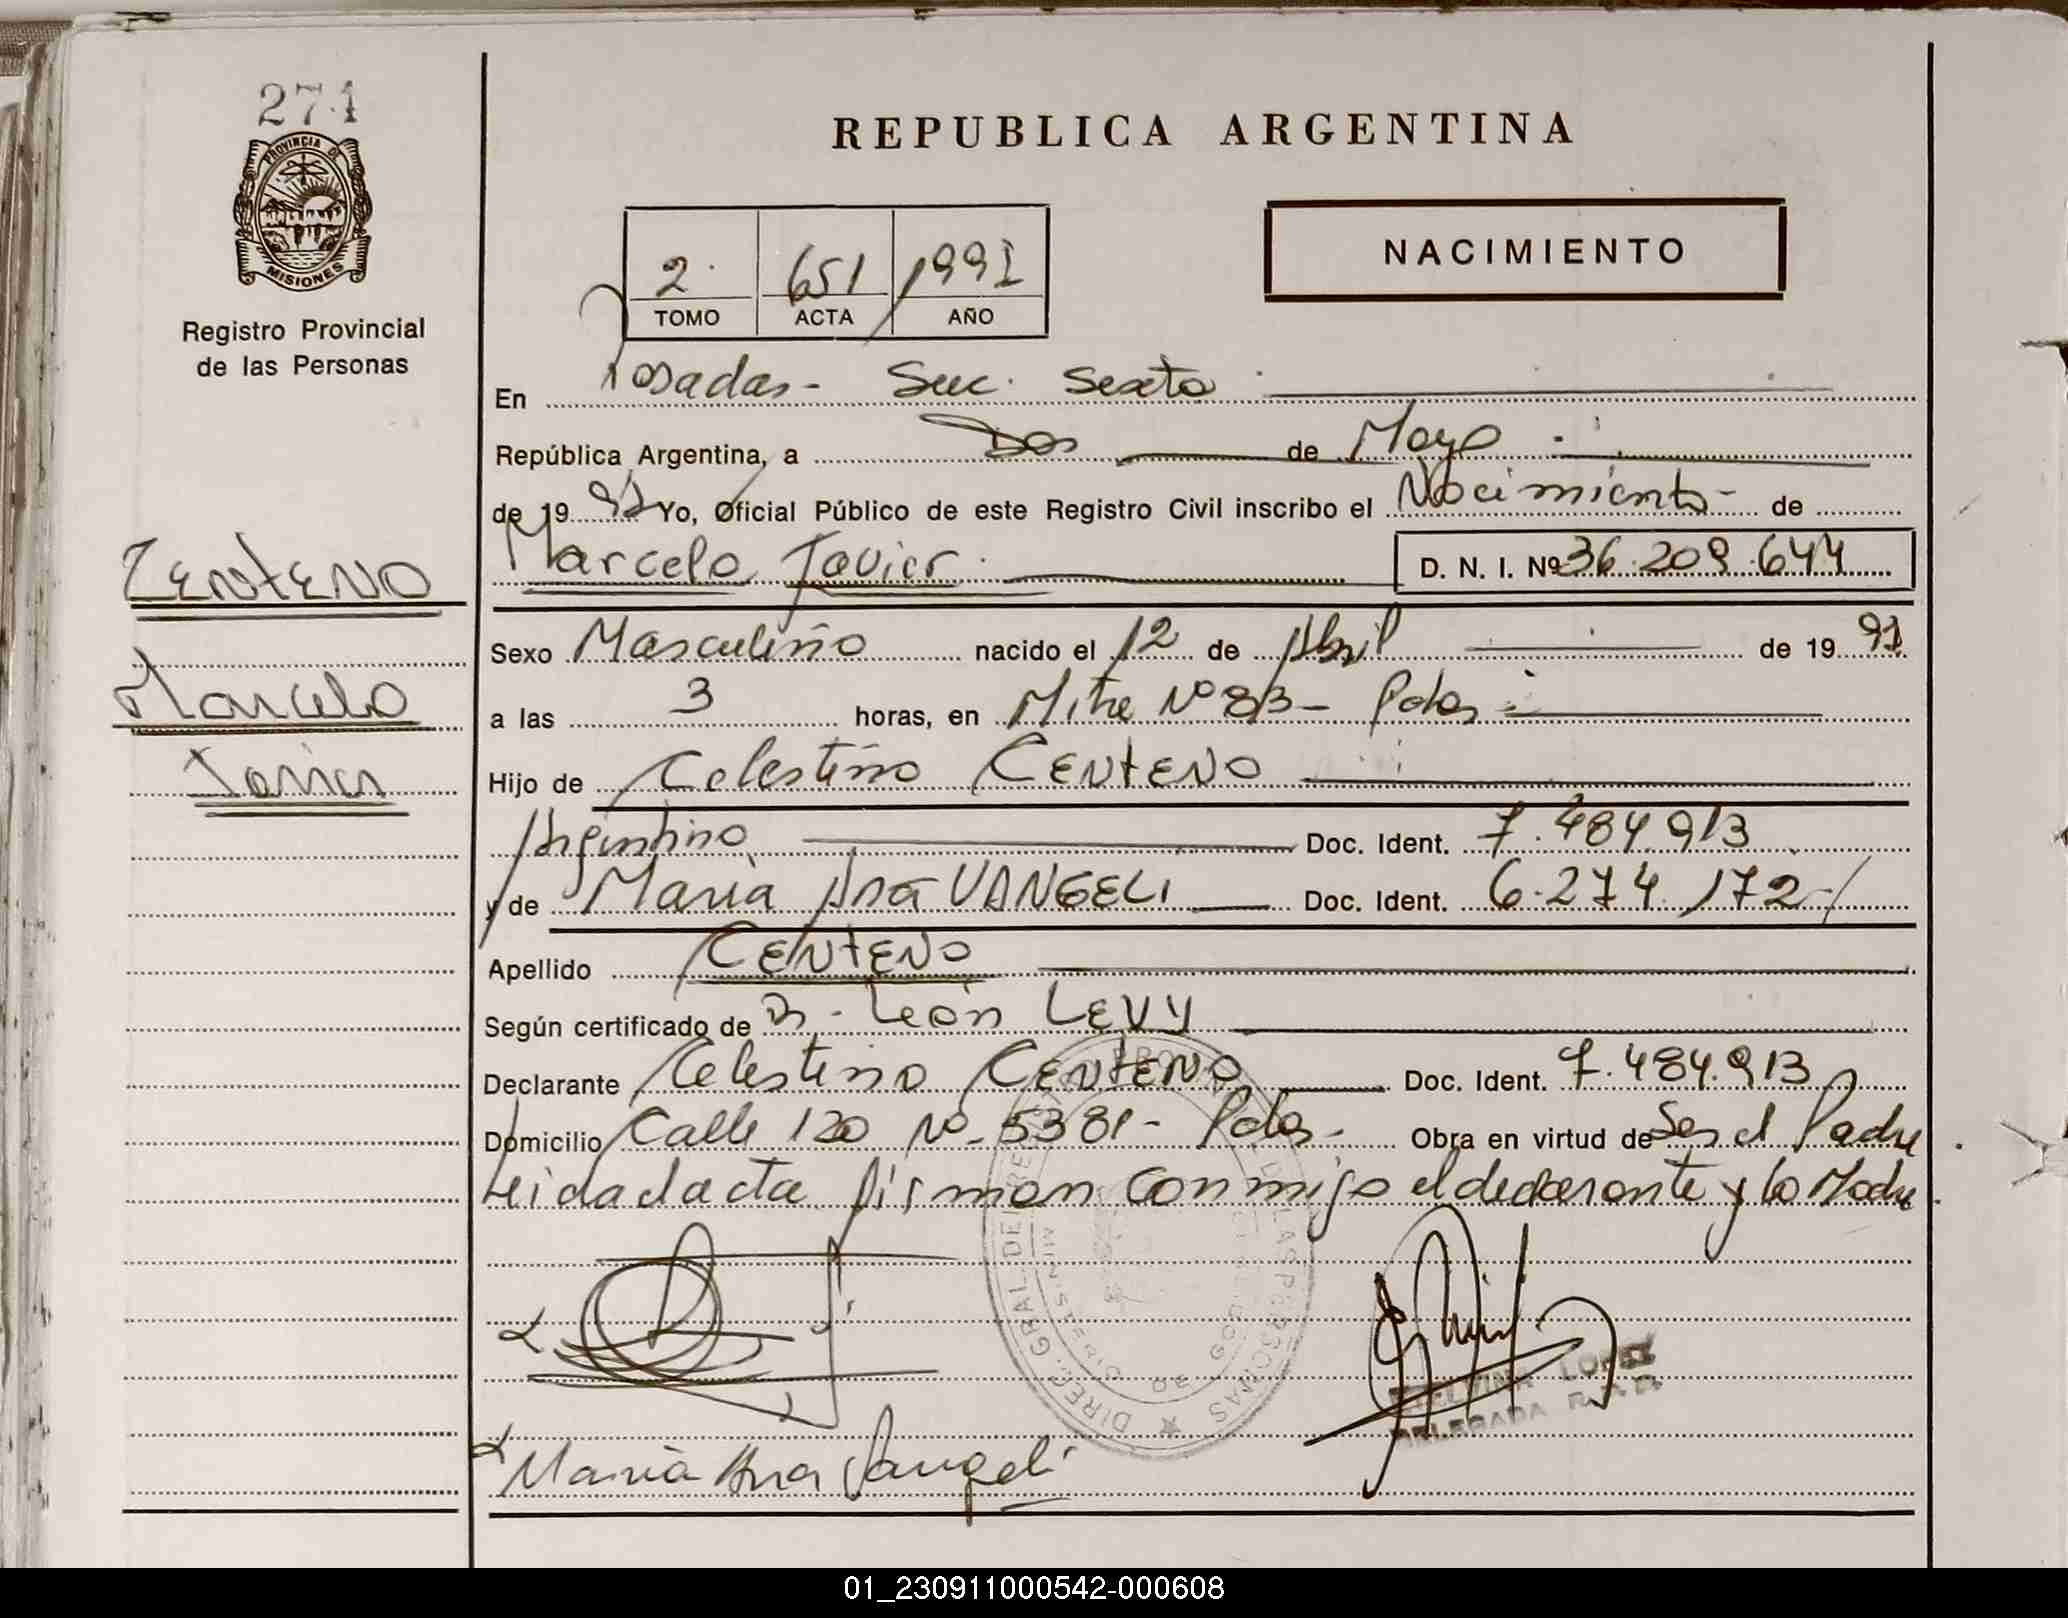 274
REPUBLICA ARGENTINA
PROVINCIA DE
MISIONES
Registro Provincial
de las Personas
NACIMIENTO
2 651 1991
TOMO ACTA AÑO
En Posadas - Secc. Sexta
República Argentina, a Dos de Mayo
de 1991 Yo, Oficial Público de este Registro Civil inscribo el Nacimiento - de
Marcelo Javier D. N. I. Nº 36.209.644
CENTENO
Marcelo
Javier
Sexo Masculino nacido el 12 de Abril de 1991
a las 3 horas, en Mitre Nº 83 - Pdas
Hijo de Celestino CENTENO
Argentino Doc. Ident. 7.484.913
y de María Ana VANGELI Doc. Ident. 6.274.172
Apellido CENTENO
Según certificado de Dr. León LEVY
Declarante Celestino CENTENO Doc. Ident. 7.484.913
Domicilio Calle 120 Nº 5381 - Pdas - Obra en virtud de Ser el Padre
Leida el acta firman conmigo el declarante y la Madre
DIREC. GRAL. DE LAS PERSONAS
LOPEZ
DELEGADA R.
María Ana Vangeli
01_230911000542-000608